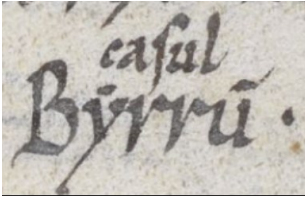 casul
Byrrū.